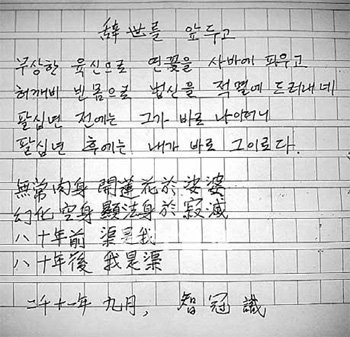 辭世를 앞두고
무상한 육신으로 연꽃을 사바에 피우고
허깨비 빈몸으로 법신을 적멸에 드러내네
팔십년 전에는 그가 바로 나이더니
팔십년 후에는 내가 바로 그이로다.
無常肉身 開蓮花於娑婆
幻化空身 顯法身於寂滅
八十年前 渠是我
八十年後 我是渠
二千十一年 九月, 智冠 識